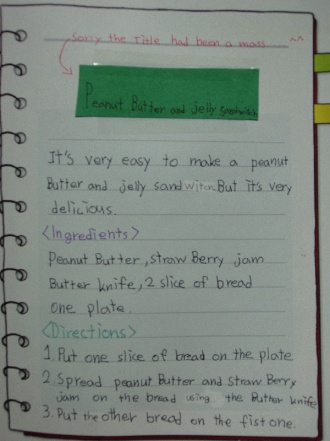 Sorry the Title had been a mass... ^^
Peanut Butter and jelly sandwich
It's very easy to make a peanut
Butter and jelly sandwitch. But it's very
delicious.
<Ingredients>
Peanut Butter, straw Berry jam
Butter knife, 2 slice of bread
one plate.
<Directions>
1. Put one slice of bread on the plate
2. Spread peanut Butter and straw Berry
jam on the bread using the Butter knife
3. Put the other bread on the fist one.